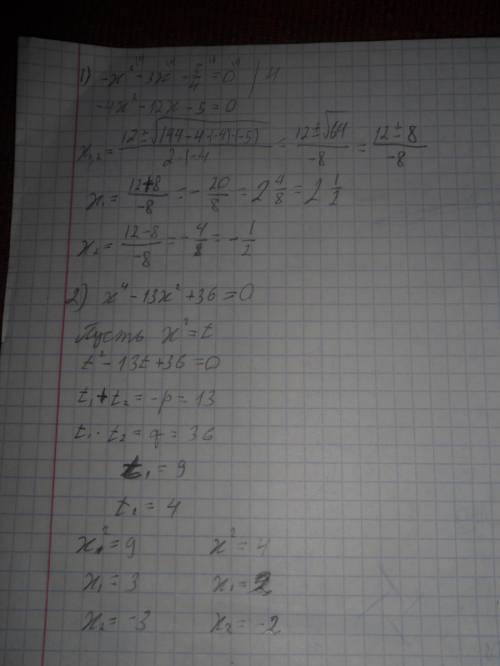 1) -x² - 3x - 5/4 = 0 | 4
-4x² - 12x - 5 = 0
x₁,₂ = (12 ± √(144 - 4·(-4)·(-5))) / (2·(-4)) = (12 ± √64) / -8 = (12 ± 8) / -8
x₁ = (12+8) / -8 = - 20/8 = 2 4/8 = 2 1/2
x₂ = (12-8) / -8 = - 4/8 = - 1/2
2) x⁴ - 13x² + 36 = 0
Пусть x² = t
t² - 13t + 36 = 0
t₁ + t₂ = -p = 13
t₁ · t₂ = q = 36
t₁ = 9
t₂ = 4
x² = 9 x² = 4
x₁ = 3 x₁ = 2
x₂ = -3 x₂ = -2